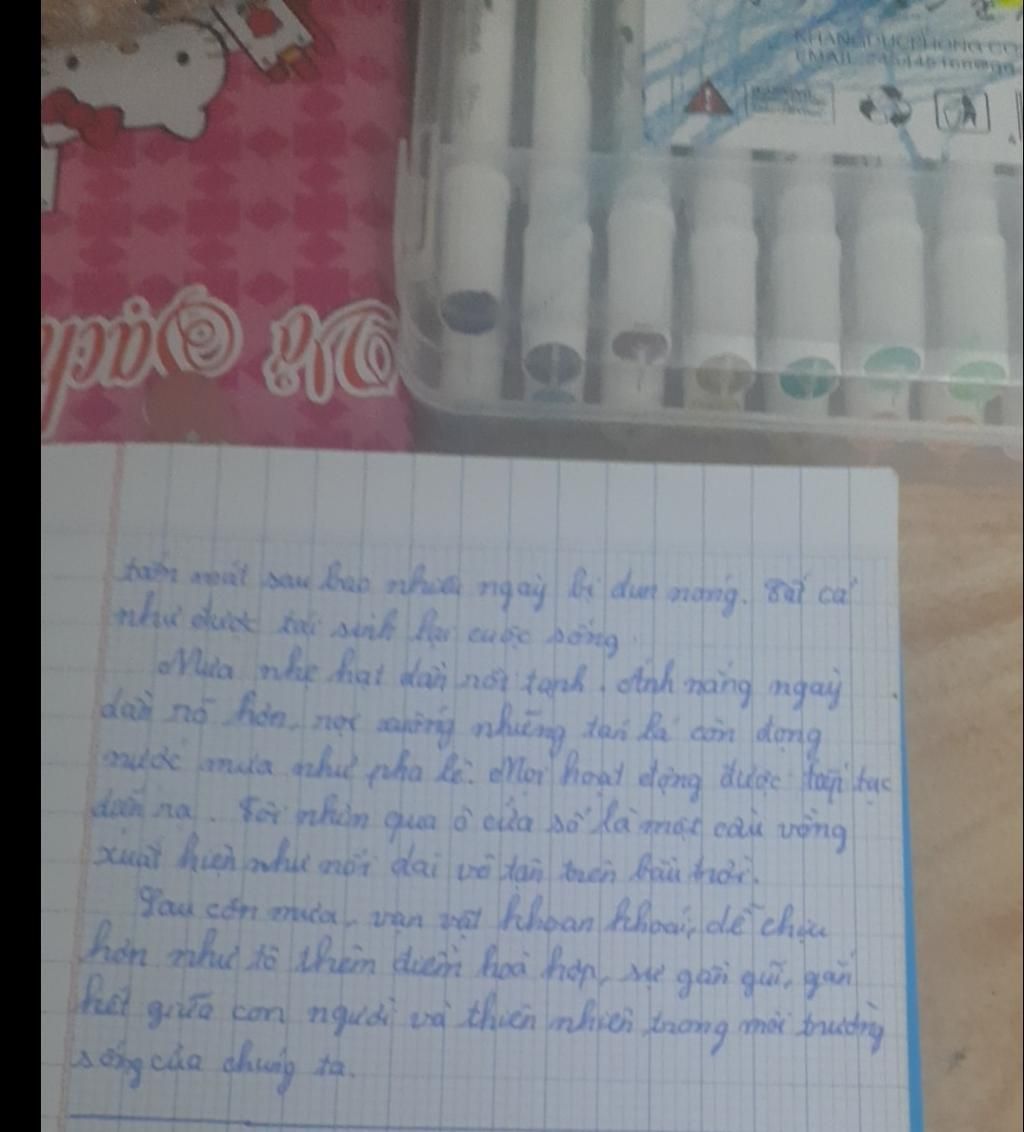 KHANGDUCPHONG CO
EMAIL
tắm mát sau bao nhiêu ngày bị đun nóng. Tất cả
như được tái sinh lại cuộc sống.
Mưa nhẹ hạt dần rồi tạnh. Ánh nắng ngày
dần rõ hơn, rọi xuống những tán lá còn đọng
nước mưa như pha lê. Mọi hoạt động được tiếp tục
diễn ra. Tôi nhìn qua ô cửa sổ là một cầu vồng
xuất hiện như nối dài vô tận trên bầu trời.
Sau cơn mưa, vạn vật khoan khoái, dễ chịu
hơn như tô thêm điểm hoà hợp, sự gần gũi, gắn
kết giữa con người và thiên nhiên trong môi trường
sống của chúng ta.